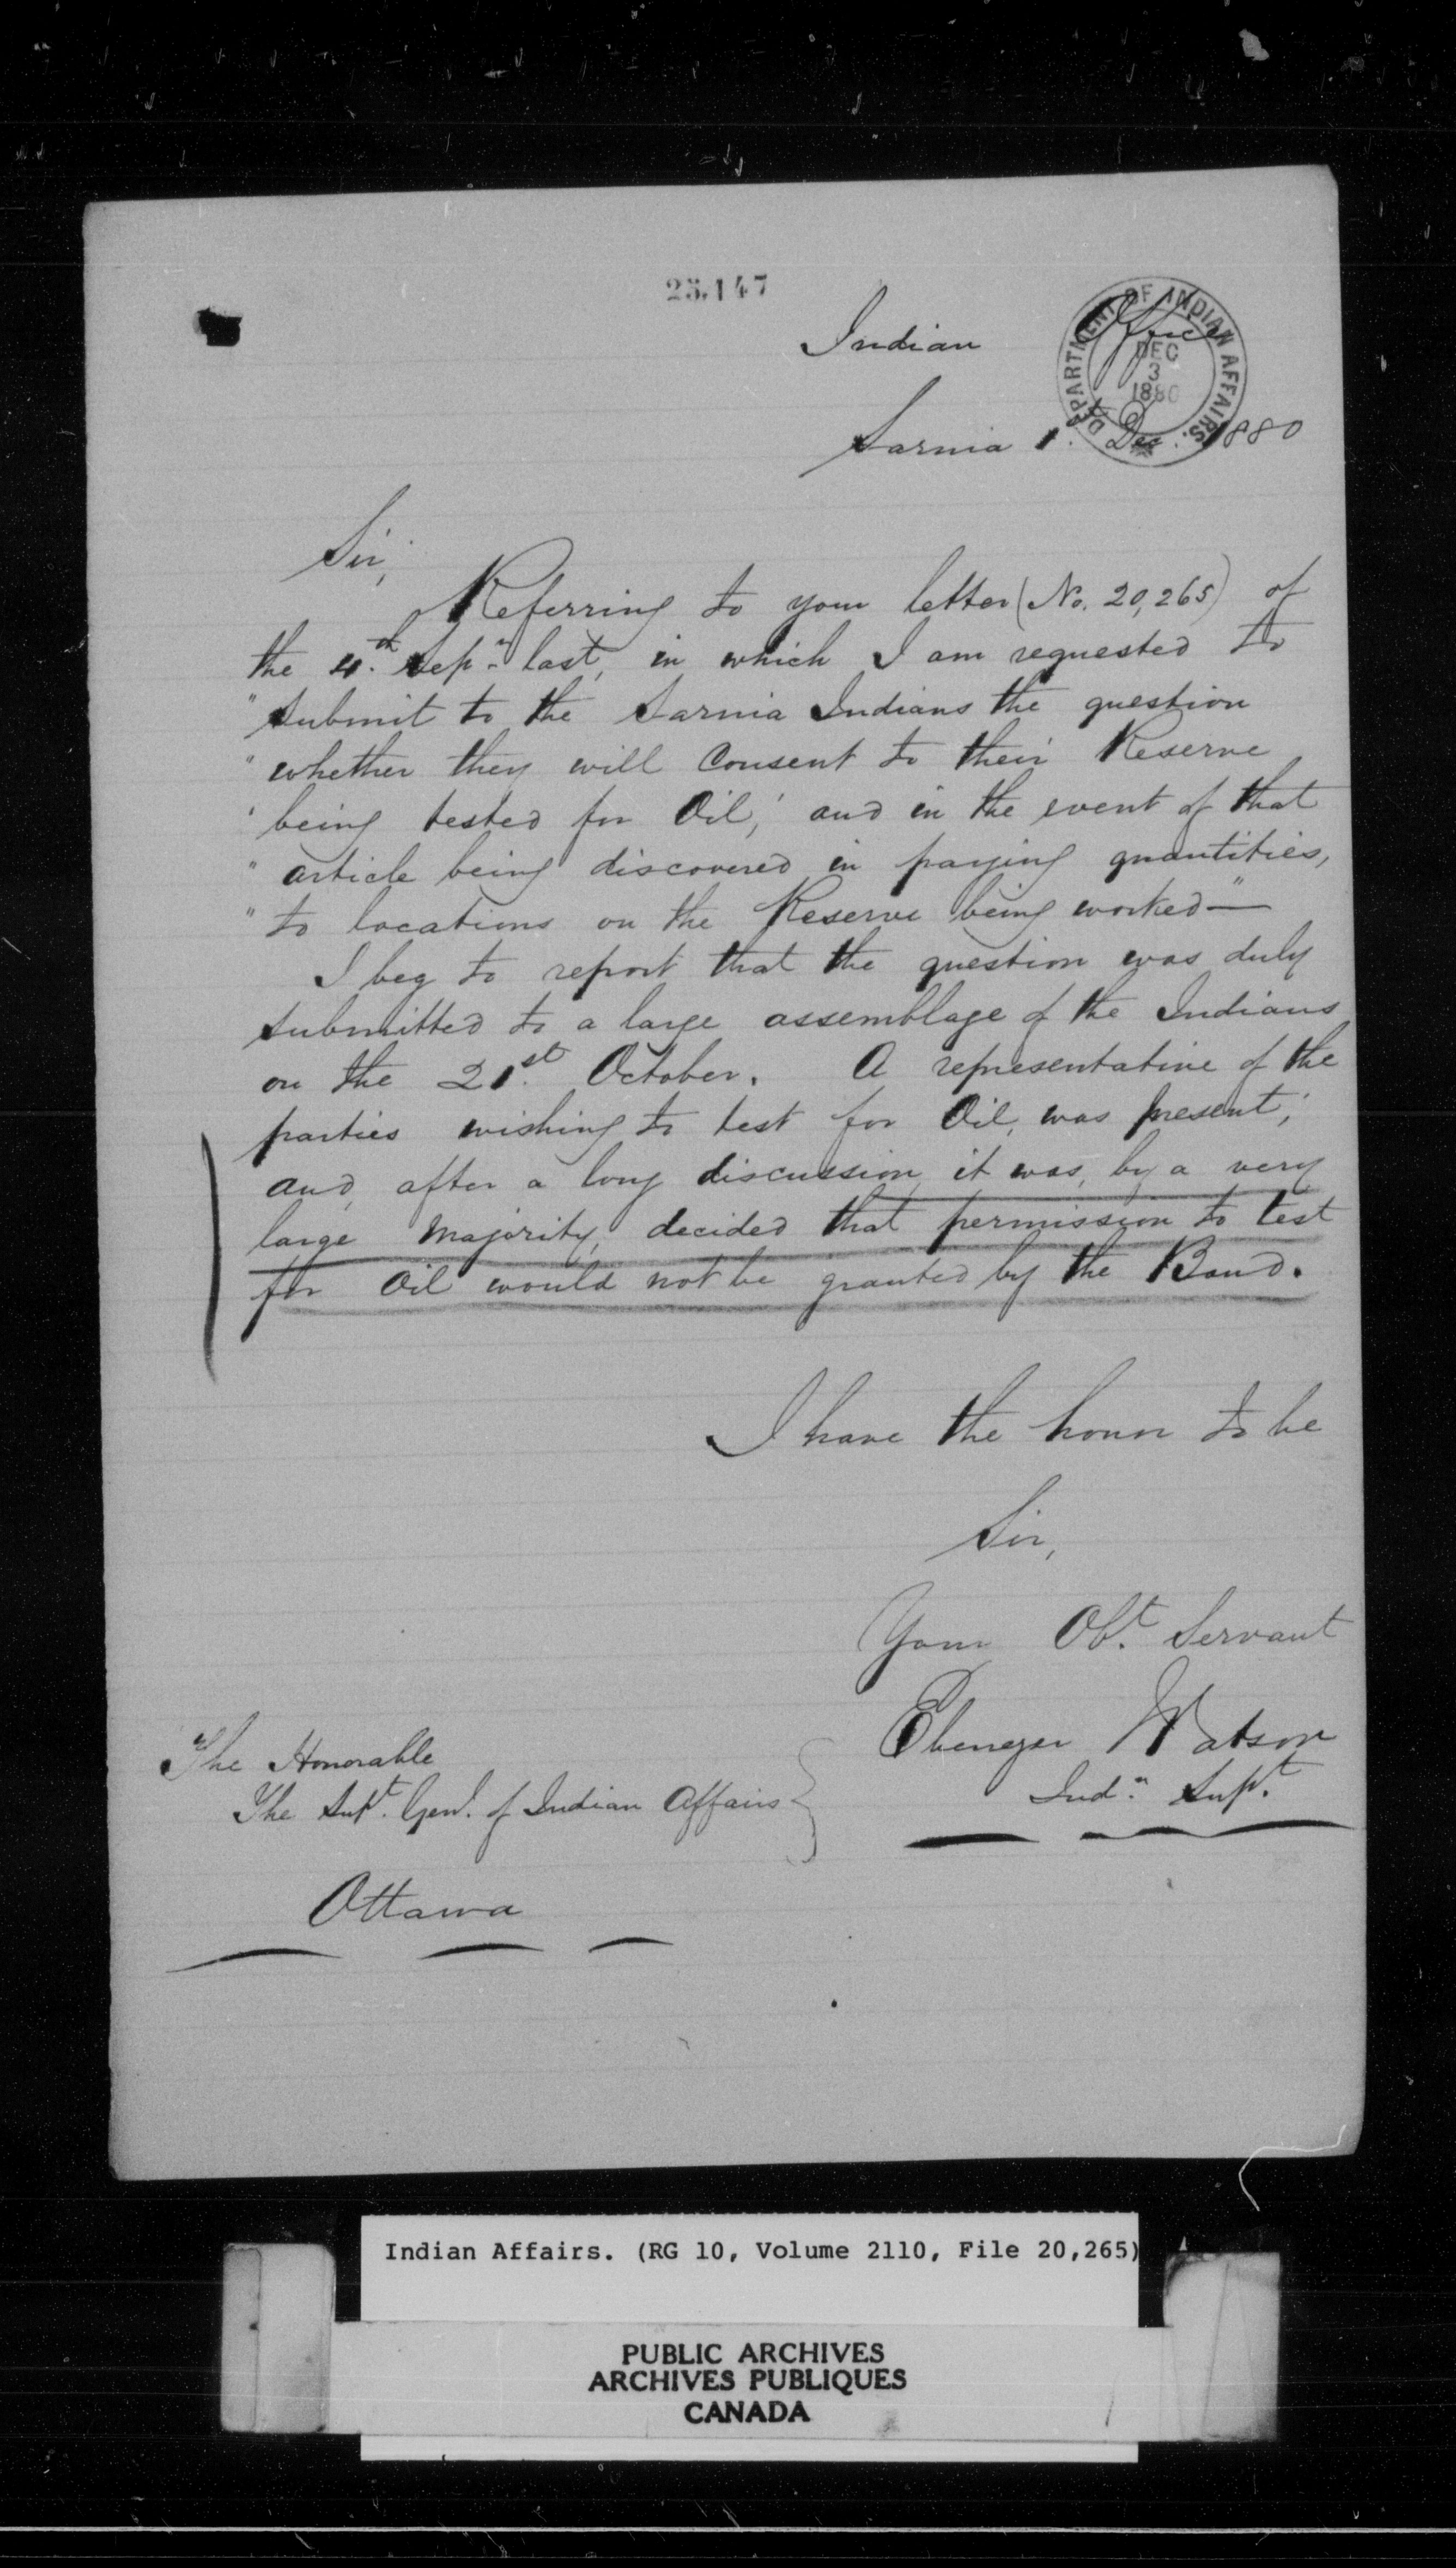 25.147
Indian Office
DEPARTMENT OF INDIAN AFFAIRS.
DEC
3
1880
Sarnia 1. Dec. 1880
Sir,
Referring to your letter (No. 20,265) of
the 4th. Sepr. last, in which I am requested to
"submit to the Sarnia Indians the question
"whether they will Consent to their Reserve
"being tested for Oil; and in the event of that
"article being discovered in paying quantities,
"to locations on the Reserve being worked"—
I beg to report that the question was duly
submitted to a large assemblage of the Indians
on the 21st. October. A representative of the
parties wishing to test for Oil, was present;
and, after a long discussion, it was, by a very
large Majority, decided that permission to test
for Oil would not be granted by the Band.
I have the honor to be
Sir,
Your Obt. Servant
Ebenezer Watson
Indn. Supt.
The Honorable
The Supt. Genl. of Indian Affairs
Ottawa
Indian Affairs. (RG 10, Volume 2110, File 20,265)
PUBLIC ARCHIVES
ARCHIVES PUBLIQUES
CANADA